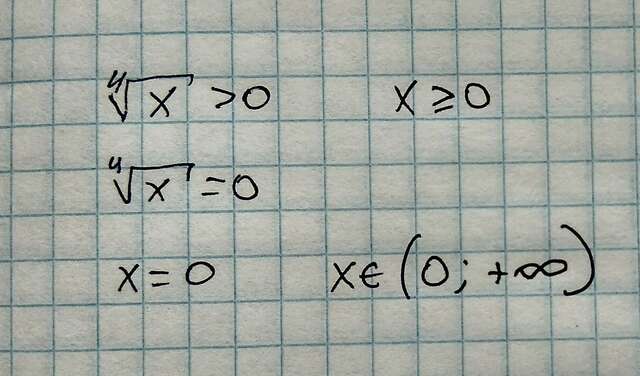 ∜x > 0 x ≥ 0
∜x = 0
x = 0 x ∈ (0; +∞)